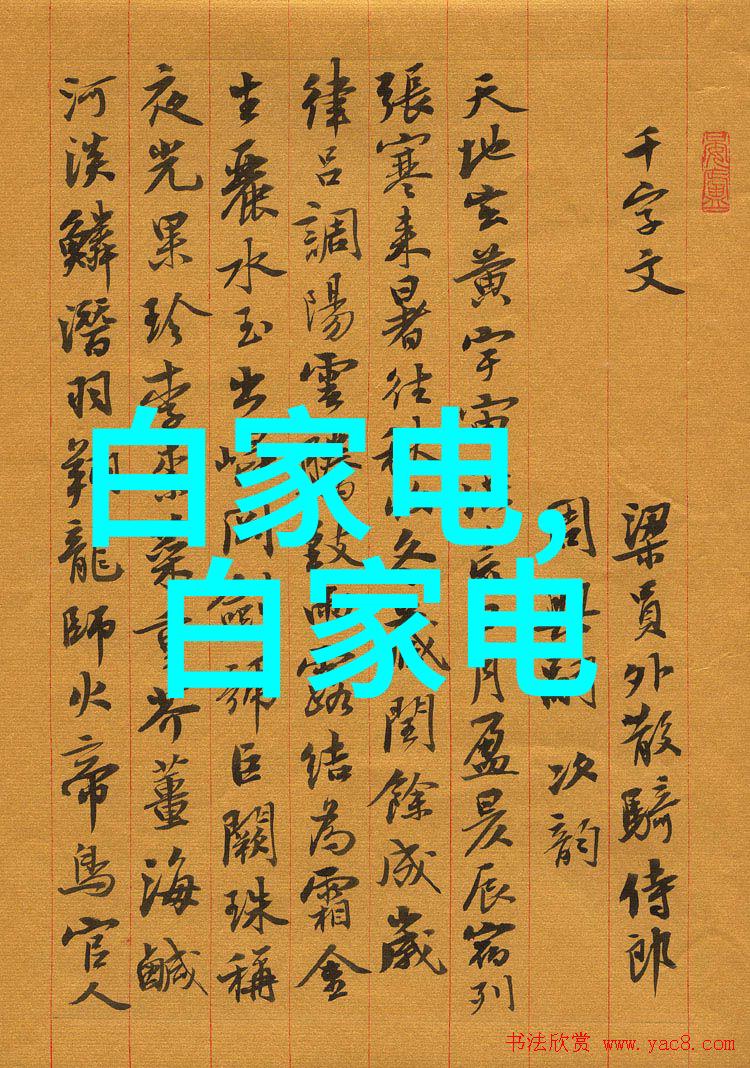 千字文
梁員外散騎侍郎
周興嗣 次韵
天地玄黃宇宙洪荒日月盈昃辰宿列
張寒来暑往秋收冬藏閏餘成歲
律呂調陽雲騰致雨露結為霜金
生麗水玉出崑岡劍號巨闕珠稱
夜光果珍李柰菜重芥薑海鹹
河淡鱗潛羽翔龍師火帝鳥官人
白家电,
白家电
书法欣赏 www.yac8.com